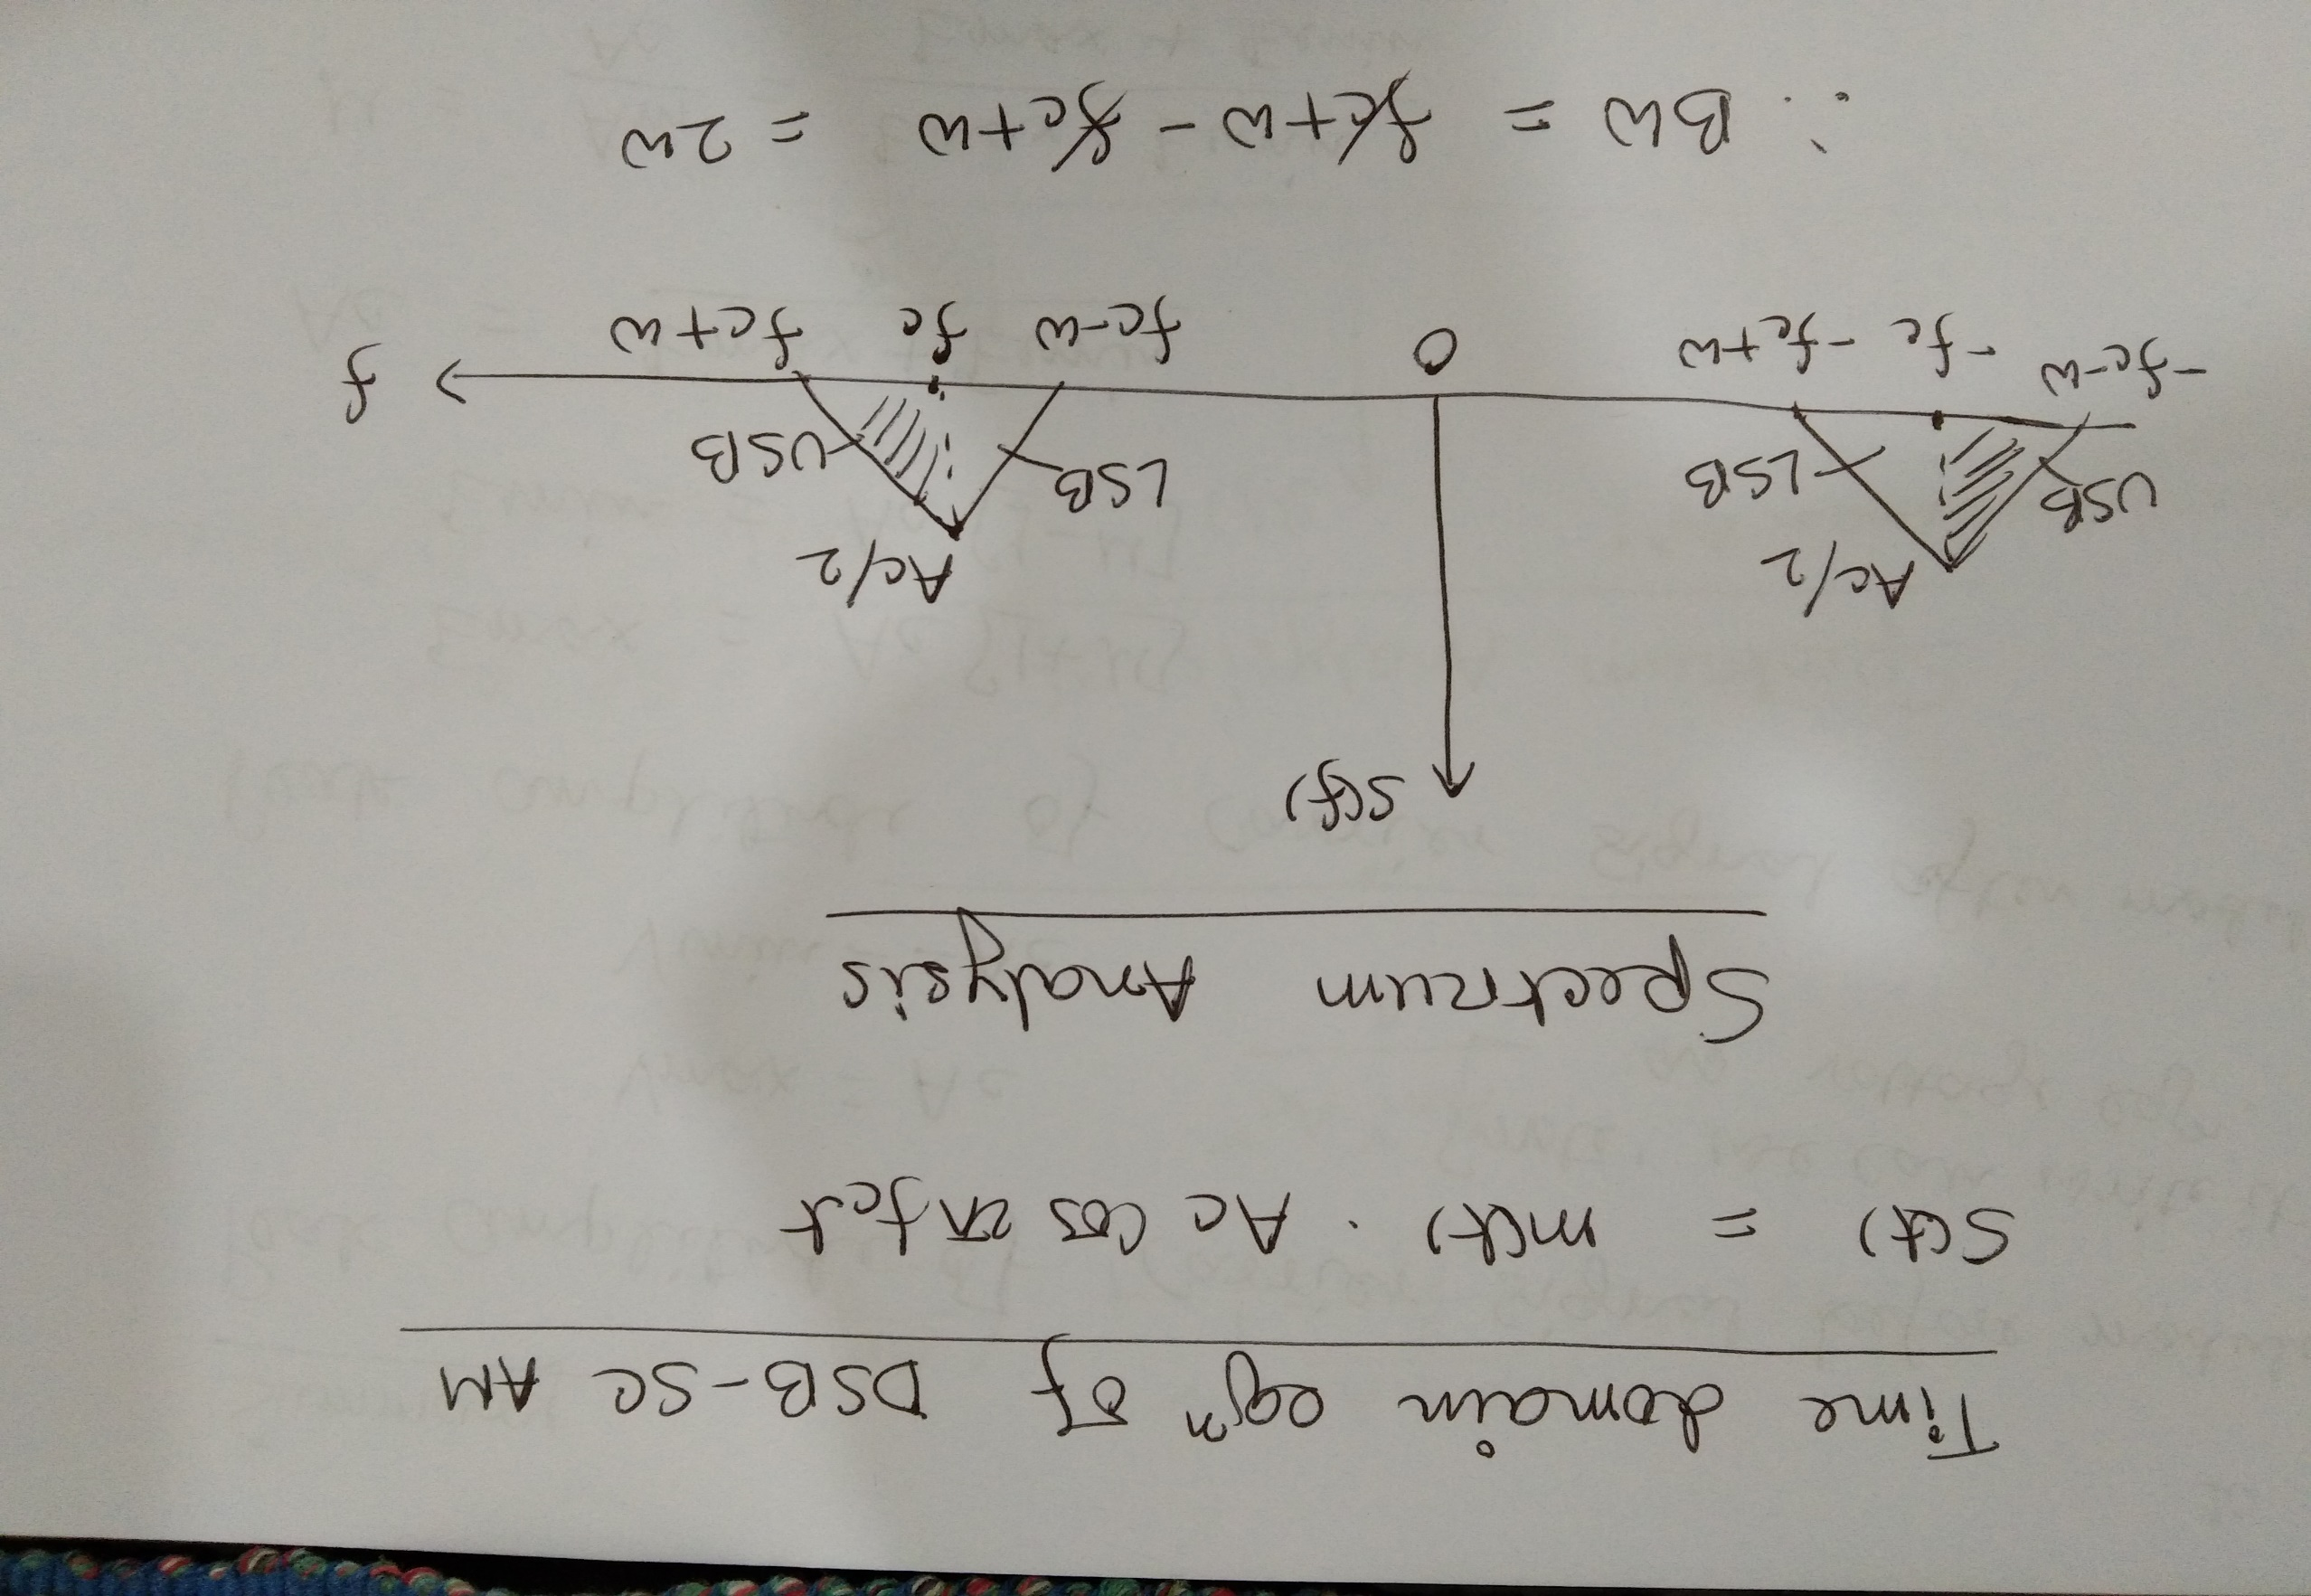 Time domain eqⁿ of DSB-SC AM
S(t) = m(t) . Ac cos 2π fct
Spectrum Analysis
S(f)
Ac/2 Ac/2
USB LSB LSB USB
-fc-w -fc -fc+w 0 fc-w fc fc+w f
∴ BW = fc+w - fc+w = 2w